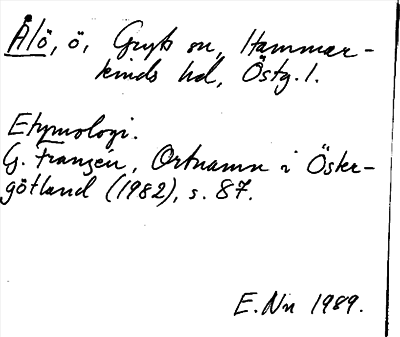 Ålö, ö, Gryts sn, Hammar-
kinds hd, Östg. l.
Etymologi.
G. Franzén, Ortnamn i Öster-
götland (1982), s. 87.
E. Nn 1989.